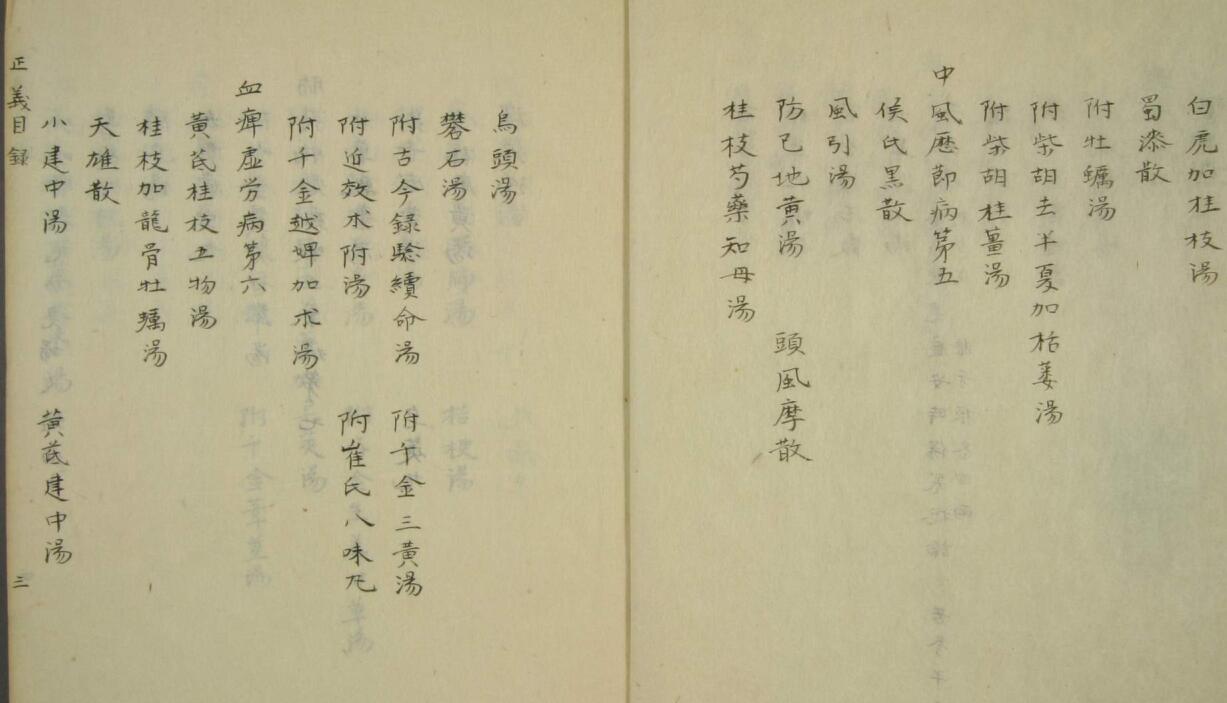 白虎加桂枝湯
蜀漆散
附牡蠣湯
附柴胡去半夏加栝蔞湯
附柴胡桂薑湯
中風歷節病第五
侯氏黒散
風引湯
防已地黄湯 頭風摩散
桂枝芍藥知母湯
烏頭湯
礬石湯
附古今録驗續命湯 附千金三黄湯
附近效朮附湯 附崔氏八味丸
附千金越婢加朮湯
血痺虚労病第六
黄芪桂枝五物湯
桂枝加龍骨牡蠣湯
天雄散
小建中湯 黄芪建中湯
正義目録 三